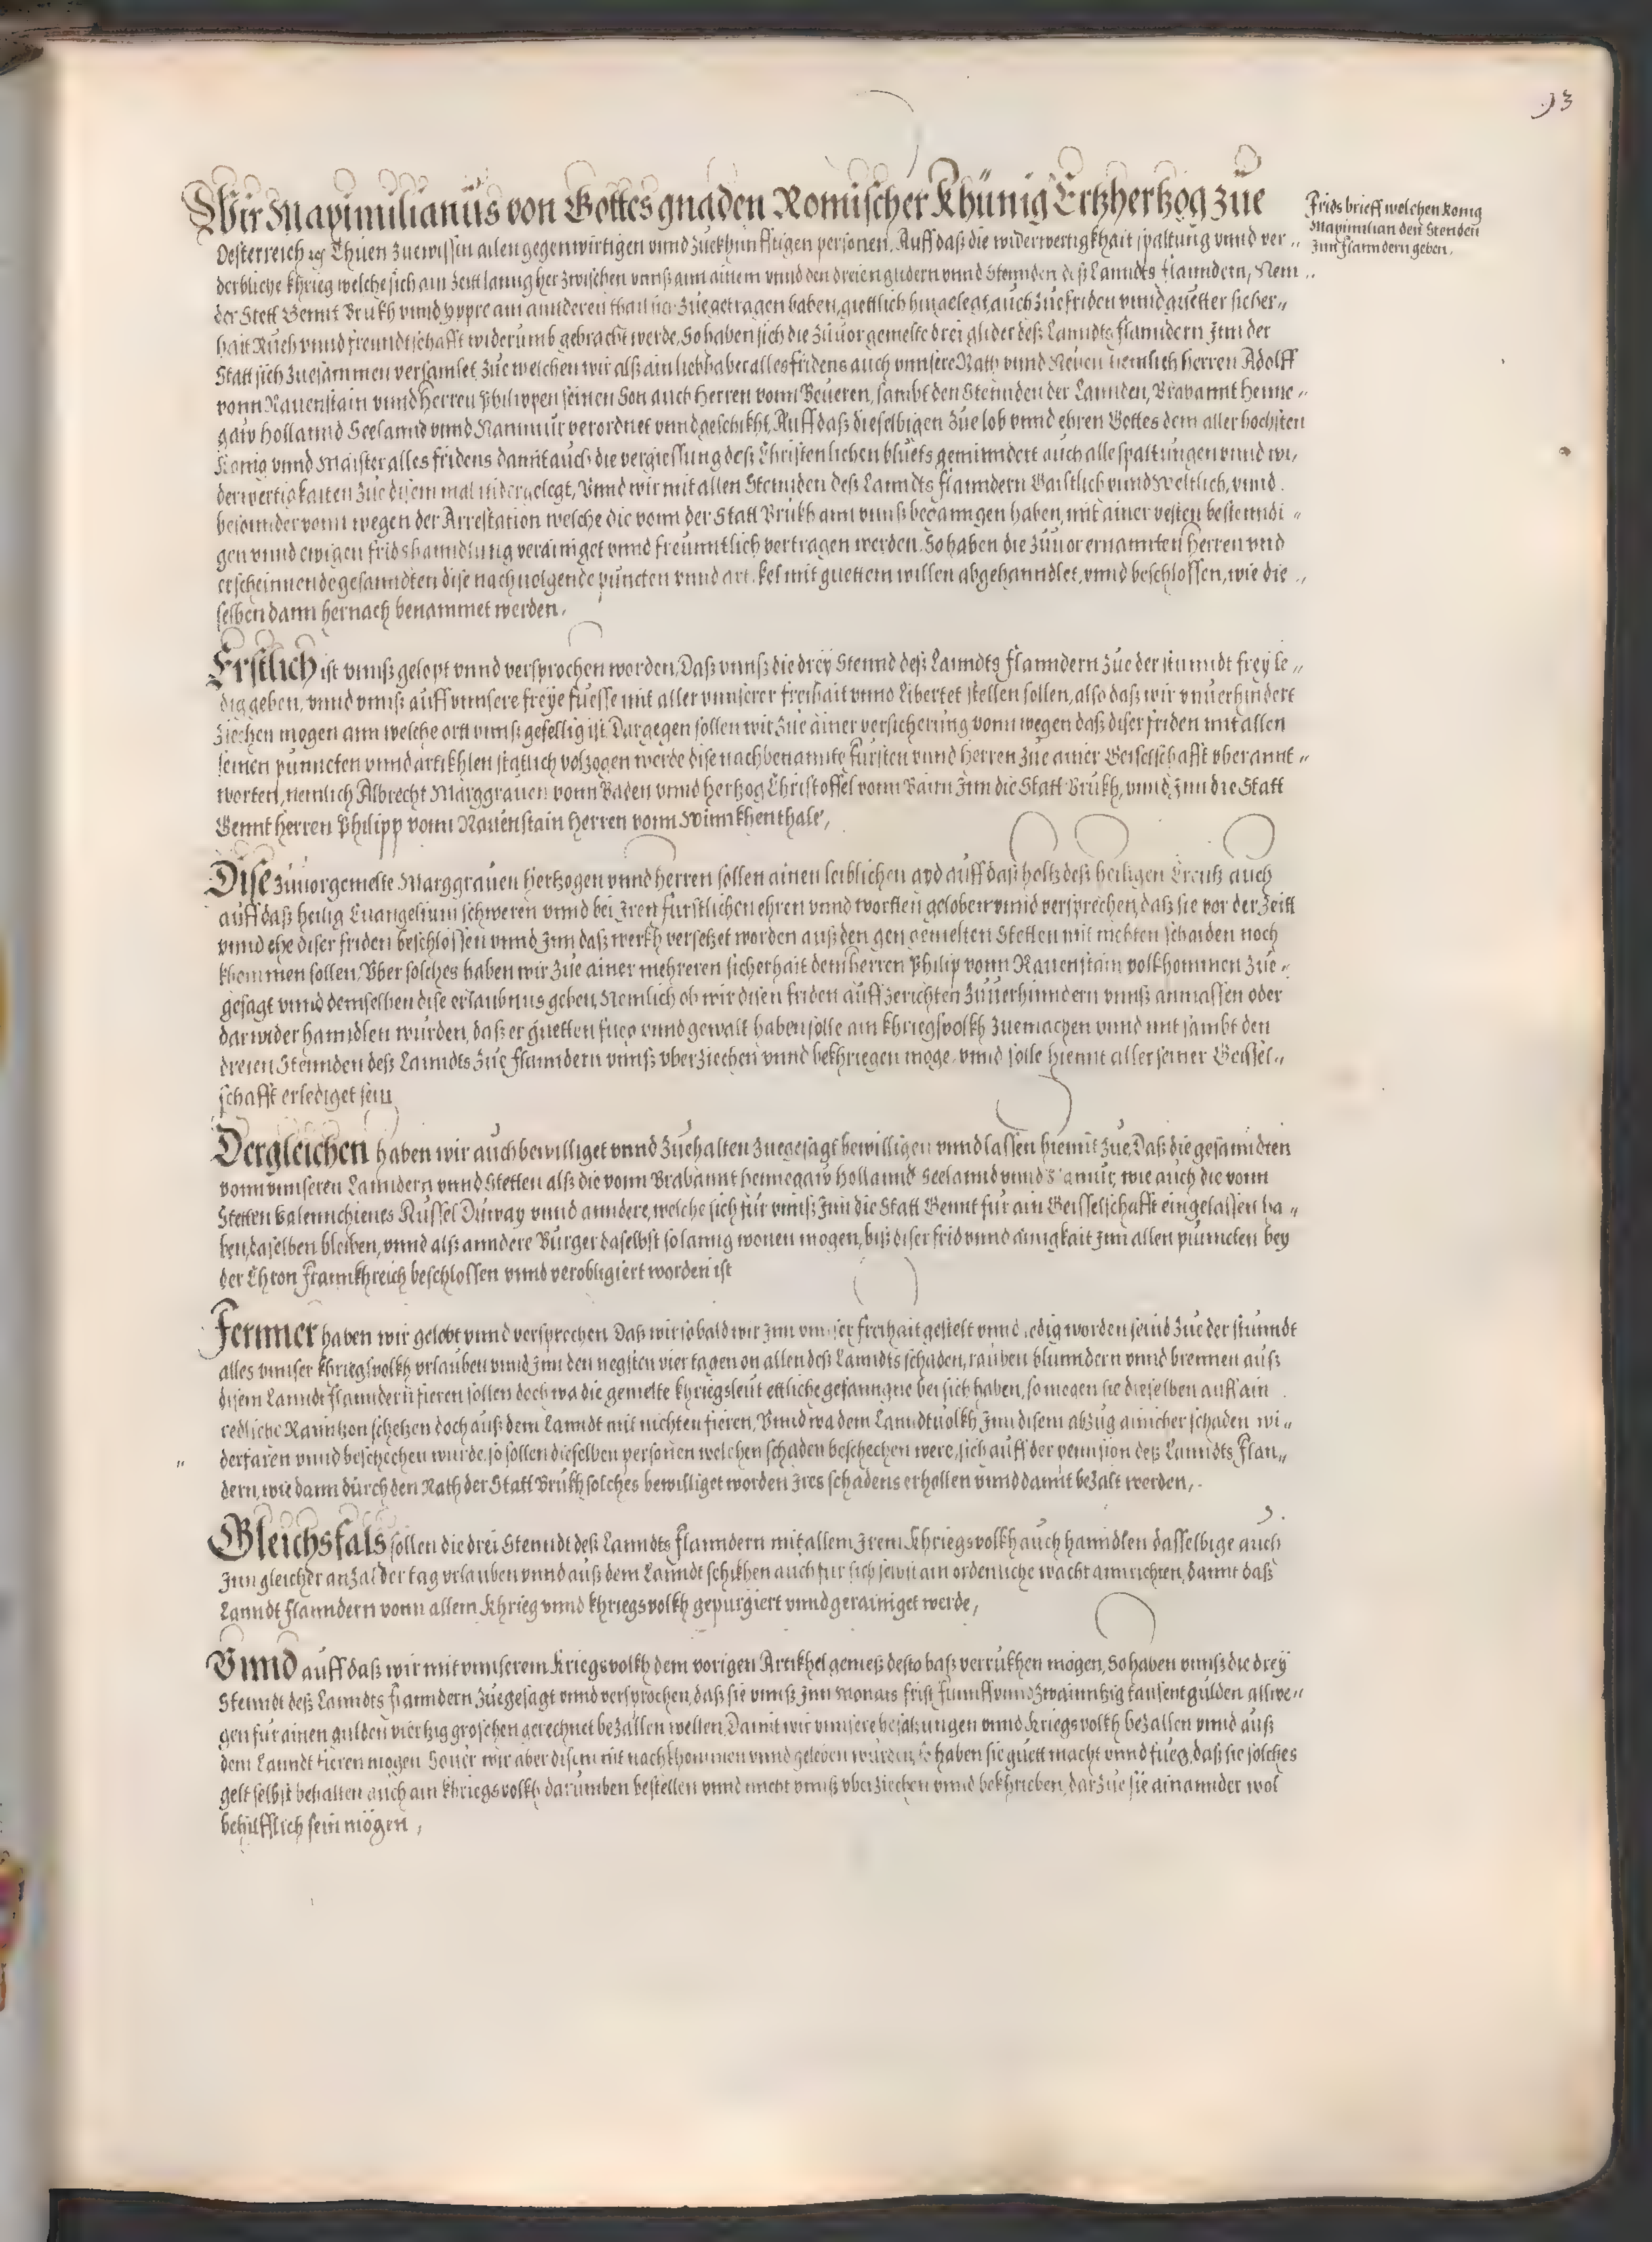 93
Wir Maximilianus von Gottes gnaden Romischer Khünig Ertzhertzog zue
Fridsbrieff welchen König
Maximilian den Stenden
Inn Flanndern geben.
Oesterreich ꝛc Thuen zuewissin allen gegenwirtigen vnnd zuekhünfftigen personen. Auff daß die widerwertigkhait spaltung vnnd ver„
derbliche khrieg welche sich ain Zeitt lanng her zwischen vnnß ann ainem vnnd den dreien glidern vnnd Stennden deß Lanndts Flanndern, Nem„
der Stett Gennt Brukh vnnd yppre am annderen thail zuegetragen haben, guettlich hingelegt, auch zue friden vnnd guetter sicher„
hait Ruch vnnd freundtschafft widerumb gebracht werde. So haben sich die zuuor gemelte drei glider deß Lanndts Flanndern Inn der
Statt sich zuesammen versamlet, Zue welchen wir alß ain liebhaber alles fridens auch vnnsere Räth vnnd Neuen nemlich herren Adolff
vonn Rauenstain vnnd herren Philippen seinen Son auch herren vonn Beueren, sambt den Stennden der Lannden, Brabannt henne„
gaw hollannd Seelannd vnnd Nammur verordnet vnnd geschikht, Auff daß dieselbigen zue lob vnnd ehren Gottes dem aller hochsten
König vnnd Maister alles fridens damit auch die vergiessung deß Christenlichen bluets geminndert auch alle spaltungen vnnd wi„
derwertigkaiten zue disem mal nidergelegt, Vnnd wir mit allen Stennden deß Lanndts Flanndern Gaistlich vnnd Weltlich, vnnd
besonnder vonn wegen der Arrestation welche die vonn der Statt Brükh ann vnnß beganngen haben, mit ainer vesten bestenndi„
gen vnnd ewigen fridshanndlung verainiget vnnd freunntlich vertragen werden. So haben die zuuor ernannten herren vnd
erscheinnende gesanndten dise nachuolgende puncten vnnd artikel mit guettem willen abgehanndlet, vnnd beschlossen, wie die„
selben dann hernach benammet werden.
Erstlich ist vnnß gelopt vnnd versprochen worden, Daß vnnß die drey Stennd deß Lanndts Flanndern zue der stunndt frey le„
dig geben, vnnd vnnß auff vnnsere freÿe füesse mit aller vnnserer freihait vnnd Libertet stellen sollen, also daß wir vnuerhindert
ziechen mogen ann welche ortt vnnß gefellig ist. Dargegen sollen wir zue ainer versicherung vonn wegen daß diser friden mit allen
seinen punncten vnnd artikhlen statlich volzogen werde dise nachbenannte Fürsten vnnd herren zue ainer Geiselschafft vberannt„
worten, nemlich Albrecht Marggrauen vonn Baden vnnd hertzog Christoffel vonn Bairn Inn die Statt Brükh, vnnd Inn die Statt
Gennt herren Philipp vonn Rauenstain herren vonn Winnkhenthale,
Dise zuuorgemelte Marggrauen hertzogen vnnd herren sollen ainen leiblichen ayd auff daß holtz deß heiligen Creutz auch
auff daß heilig Euangelium schweren vnnd bei Iren furstlichen ehren vnnd wortten geloben vnnd versprechen, daß sie vor der Zeitt
vnnd ehe diser friden beschlossen vnnd Inn daß werkh versetzet worden auß den gemelten Stetten mit nichten schaiden noch
khommen sollen. Vber solches haben wir zue ainer mehreren sicherhait dem herren Philip vonn Rauenstain volkhommen zue„
gesagt vnnd demselben dise erlaubnus geben, Nemlich ob wir disen friden auffzerichten Zuuerhinndern vnnß anmassen oder
darwider hanndlen würden, daß er guetten fueg vnnd gewalt haben solle ain khriegsvolkh zuemachen vnnd mit sambt den
dreien Stennden deß Lanndts zue Flanndern vnnß vberziechen vnnd bekhriegen moge. vnnd solle hiemit aller seiner Geissel„
schafft erlediget sein
Dergleichen haben wir auch bewilliget vnnd zuehalten zuegesagt bewilligen vnnd lassen hiemit zue, Daß die gesanndten
vonn vnnseren Lanndern vnnd Stetten alß die vonn Brabannt hennegaw hollannd Seelannd vnnd Namur, wie auch die vonn
Stetten Valennchienes Russel Duway vnnd anndere, welche sich für vnnß Inn die Statt Gennt für ain Geisselschafft eingelassen ha„
ben, daselben bleiben, vnnd alß anndere Burger daselbst so lanng wonen mogen, biß diser frid vnnd ainigkait Inn allen punncten bey
der Chron Frannkhreich beschlossen vnnd verobligiert worden ist
Fernner haben wir gelobt vnnd versprechen Daß wir sobald wir Inn vnnser freihait gestelt vnnd ledig worden seind zue der stunndt
alles vnnser khriegsvolkh vrlauben vnnd Inn den negsten vier tagen on allen deß Lanndts schaden, rauben blunndern vnnd brennen auß
disem Lanndt Flanndern fieren sollen doch wa die gemelte khriegsleut ettliche gefanngne bei sich haben, so mogen sie dieselben auff ain
redliche Ranntzon schetzen doch auß dem Lanndt mit nichten fieren, Vnnd wa dem Lanndtuolkh Inn disem abzug ainicher schaden wi„
derfaren vnnd beschechen wurde, so sollen dieselben personen welchen schaden beschechen were, sich auff der pennsion deß Lanndts Flan„
dern, wie dann durch den Rath der Statt Brükh solches bewilliget worden Ires schadens erhollen vnnd damit bezalt werden,
Gleichsfals sollen die drei Stenndt deß Lanndts Flanndern mit allem Irem Khriegsvolkh auch hanndlen dasselbige auch
Inn gleicher anzal der tag vrlauben vnnd auß dem Lanndt schikhen auch für sich selbst ain ordenliche wacht annrichten, damit daß
Lanndt Flanndern vonn allem Khrieg vnnd khriegsvolkh gepurgiert vnnd gerainiget werde,
Vnnd auff daß wir mit vnnserem Kriegsvolkh dem vorigen Artikhel gemeß desto baß verrükhen mögen, So haben vnnß die dreÿ
Stenndt deß Lanndts Flanndern zuegesagt vnnd versprochen, daß sie vnnß Inn Monats frist Funnff vnnd Zwainntzig tausent gulden allwe„
gen für ainen gulden viertzig groschen gerechnet bezallen wellen. Damit wir vnnsere besatzungen vnnd Kriegsvolkh bezallen vnnd auß
dem Lanndt fieren mogen Souer wir aber disem nit nachkhommen vnnd geleben würden, so haben sie guett macht vnnd fueg, daß sie solches
gelt selbst behalten auch ain khriegsvolkh darumben bestellen vnnd mit vnnß vberziechen vnnd bekhrieben, darzue sie ainannder wol
behilfflich sein mögen,